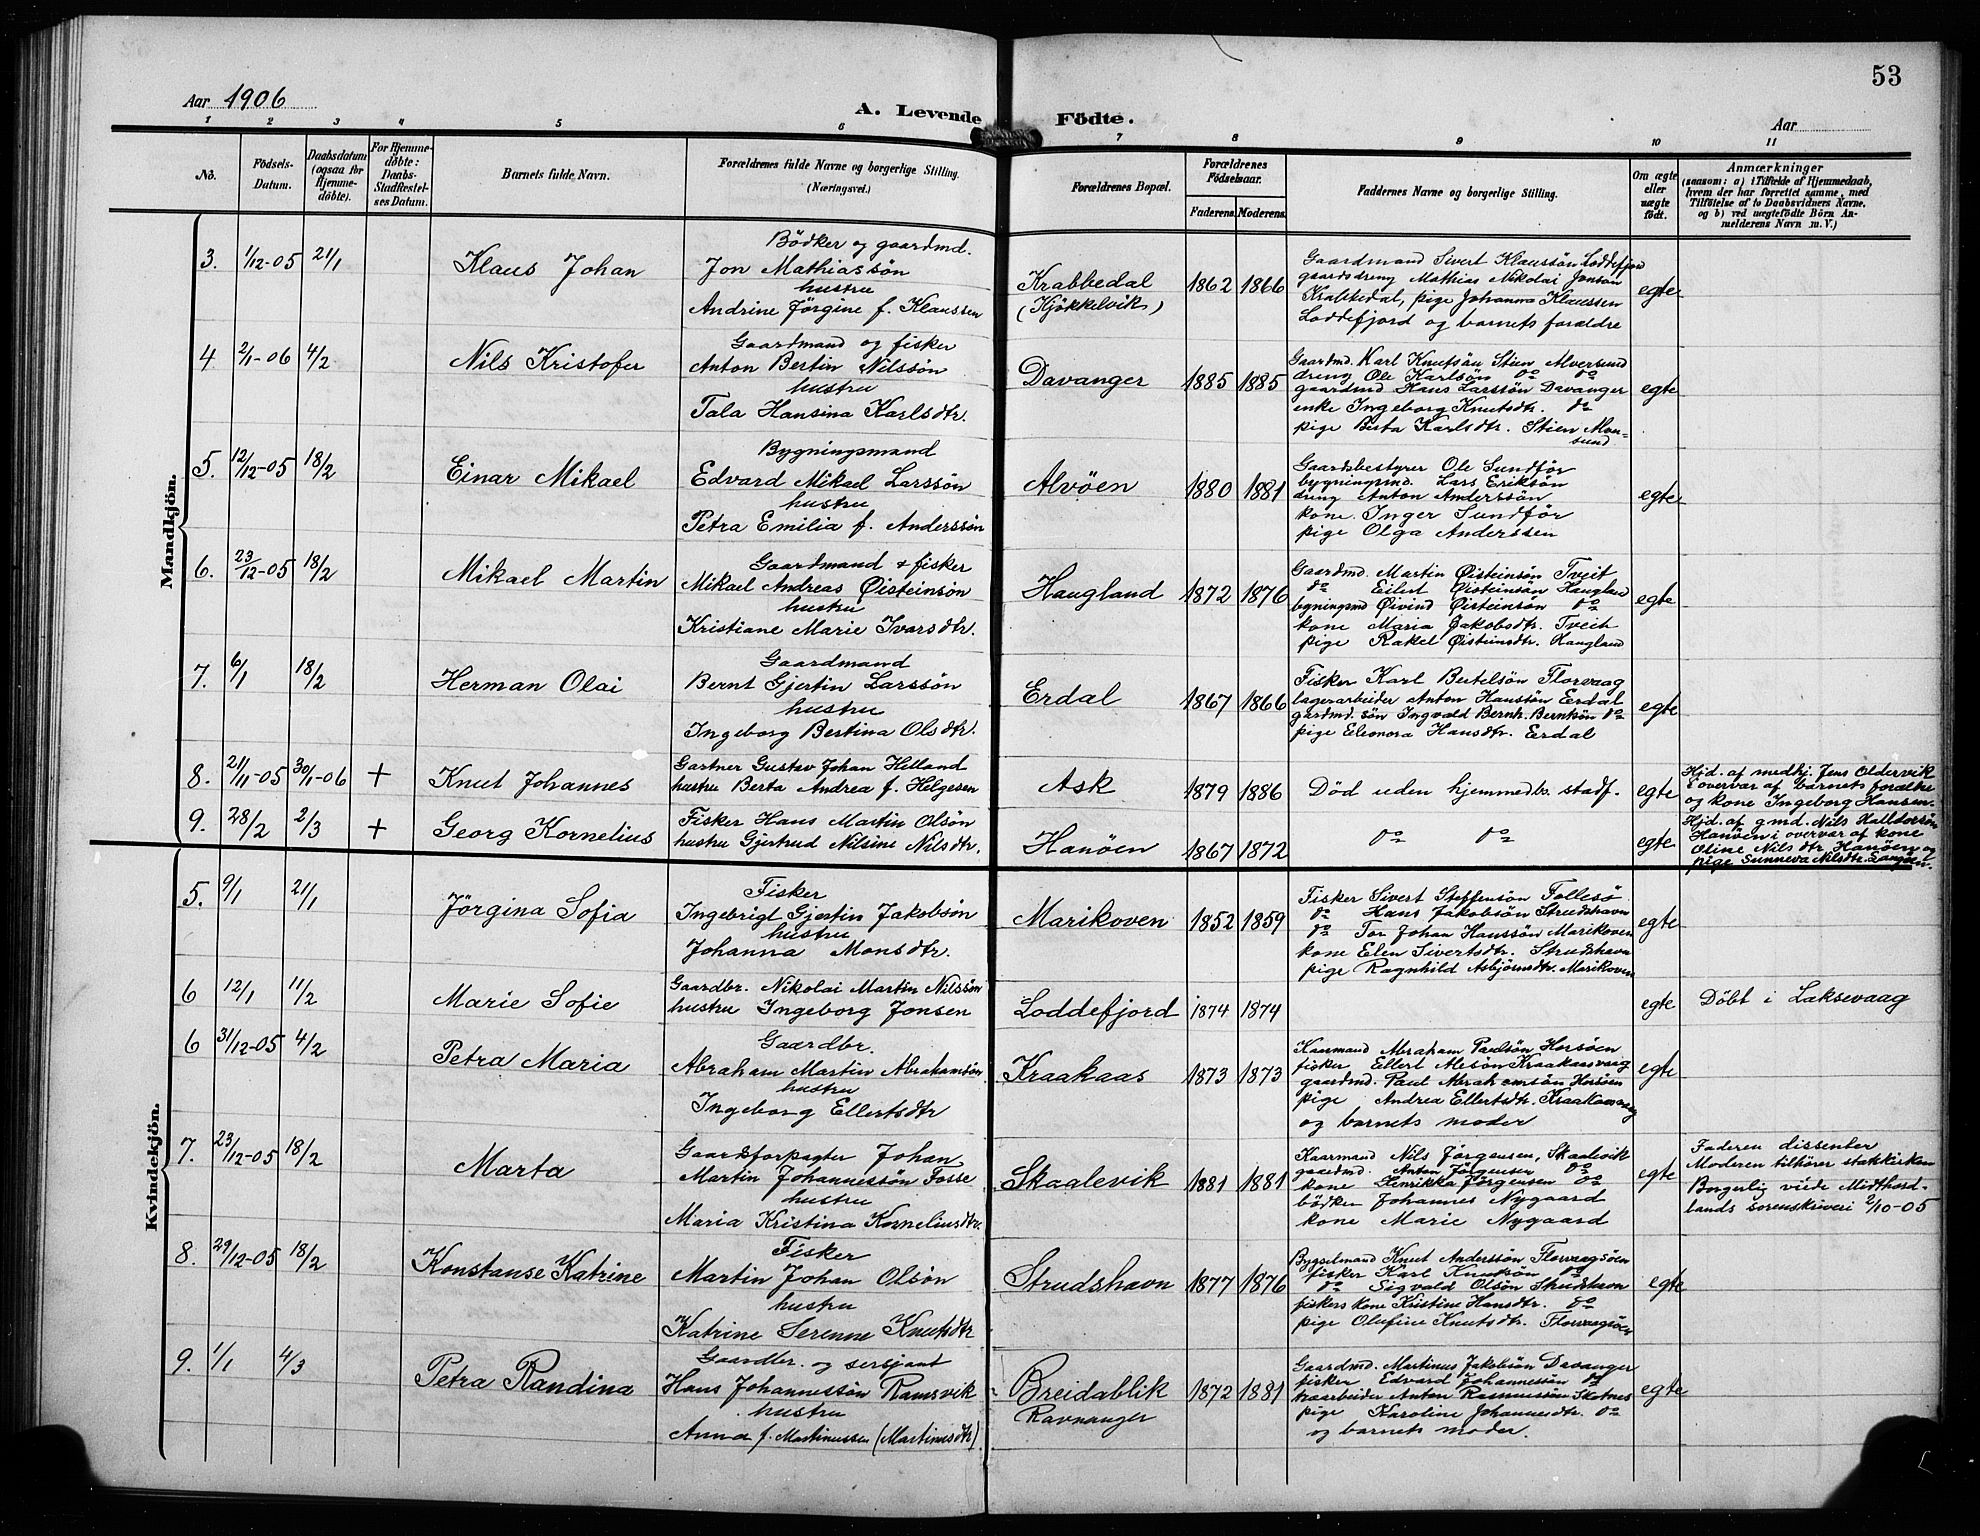 53
Aar 1906
A. Levende Födte.
Aar
1 2 3 4 5 6 7 8 9 10 11
No.
Födsels-Datum.
Daabsdatum (ogsaa for Hjemmedöbte).
For Hjemmedöbte: Daabs-Stadfæstelses Datum.
Barnets fulde Navn.
Forældrenes fulde Navne og borgerlige Stilling. (Næringsvei.)
Forældrenes Bopæl.
Forældrenes Födselsaar.
Faderens. Moderens.
Faddernes Navne og borgerlige Stilling.
Om ægte eller uægte födt.
Anmærkninger
(saasom: a) i Tilfælde af Hjemmedaab, hvem der har forrettet samme, med Tilföielse af to Daabsvidners Navne, og b) ved uægtefödte Börn Anmelderens Navn m.V.)
Mandkjön.
3. 1/12-05 21/1 Klaus Johan
Bödker og gaardmd.
Jon Mathiassön
hustru
Andrine Jörgine f. Klaussen
Krabbedal
(Kjökkelvik)
1862 1866
Gaardmand Sivert Klaussön Loddefjord
gaardsdreng Mathias Nikolai Jonsön
Krabbedal, pige Johanna Klaussen
Loddefjord og barnets forældre
egte
4 2/1-06 4/2 Nils Kristofer
Gaardmand og fisker
Anton Bertin Nilssön
hustru
Tala Hansina Karlsdtr.
Davanger
1885 1885
Gaardmd. Karl Knutsön Stien Alversund
dreng Ole Karlsön do do
gaardmd Hans Larssön Davanger
enke Ingeborg Knutsdtr. do
pige Berta Karlsdtr. Stien Alver-
sund
egte
5. 12/12-05 18/2 Einar Mikael
Bygningsmand
Edvard Mikael Larssön
hustru
Petra Emilia f. Anderssön
Alvöen
1880 1881
Gaardsbestyrer Ole Sundför
bygningsmd. Lars Eriksön
dreng Anton Anderssön
kone Inger Sundför
pige Olga Anderssen
egte
6. 23/12-05 18/2 Mikael Martin
Gaardmand & fisker
Mikael Andreas Øisteinsön
hustru
Kristiane Marie Ivarsdtr.
Haugland
1872 1876
Gaardmd. Martin Øisteinsön Tveit
do Eilert Øisteinsön Haugland
bygningsmd Øivind Øisteinsön do
kone Maria Jakobsdtr. Tveit
pige Rakel Øisteinsdtr. Haugland
egte
7. 6/1 18/2 Herman Olai
Gaardmand
Bernt Gjertin Larssön
hustru
Ingeborg Bertina Olsdtr.
Erdal
1867 1866
Fisker Karl Bertelsön Florvaag
lagerarbeider Anton Hanssön Erdal
gardmd. sön Ingvald Bernh. Berntsön do
pige Eleonora Hansdtr. Erdal
egte
8. 21/11-05 30/1-06 + Knut Johannes
Gartner Gustav Johan Hilland
hustru Berta Andrea f. Helgesen
Ask
1879 1886
Död uden hjemmedbs. stadf.
egte
Hjd. af medhj. Jens Oldervik
i overvær af barnets forældre
og kone Ingeborg Hansen.
9. 28/2 2/3 + Georg Kornelius
Fisker Hans Martin Olsön
hustru Gjertrud Nilsine Nilsdtr.
Hanöen
1867 1872
do do
egte
Hjd. af gmd. Nils Halldorsön
Hanöen i overvær af kone
Oline Nilsdtr Hanöen og
pige Sunneva Nilsdtr.
Kvindekjön.
5. 9/1 21/1 Jörgina Sofia
Fisker
Ingebrigt Gjertin Jakobsön
hustru
Johanna Monsdtr.
Marikoven
1852 1859
Fisker Sivert Steffensön Follesö
do Hans Jakobsön Strudshavn
do Tor Johan Hanssön Marikoven
kone Elen Sivertsdtr. Strudshavn
pige Ragnhild Asbjörnsdtr. Marikoven
egte
6 12/1 11/2 Marie Sofie
Gaardbr. Nikolai Martin Nilssön
hustru Ingeborg Jonsen
Loddefjord
1874 1874
egte
Döbt i Laksevaag
6 31/12-05 4/2 Petra Maria
Gaardbr.
Abraham Martin Abrahamsön
hustru
Ingeborg Ellertsdtr
Kraakaas
1873 1873
Kaarmand Abraham Paulsön Horsöen
fisker Ellert Kraakaasvaag
gaardmd. Paul Abrahamsön Horsöen
pige Andrea Ellertsdtr. Kraakaasvaag
og barnets moder
egte
7. 23/12-05 18/2 Marta
Gaardsforpagter Johan
Martin Johannessön Fosse
hustru
Maria Kristina Korneliusdtr.
Skaalevik
1881 1881
Kaarmand Nils Jörgensen, Skaalevik
gaardmd. Anton Jörgensen do
kone Henrikka Jörgensen do
bödker Johannes Nygaard
kone Marie Nygaard
egte
Faderen dissenter
Moderen tilhörer statskirken
Borgerlig viede Midthord-
lands sorenskriveri 2/10-05
8. 29/12-05 18/2 Konstanse Katrine
Fisker
Martin Johan Olsön
hustru
Katrine Serenne Knutsdtr
Strudshavn
1877 1876
Bygselmand Knut Anderssön Florvaagsöen
fisker Karl Knutsön do
do Sigvald Olsön Strudshavn
fiskers kone Kristine Hansdtr. do
pige Olufine Knutsdtr. Florvaagsöen
egte
9. 1/1 4/3 Petra Randina
Gaardbr. og sersjant
Hans Johannessön Ramsvik
hustru
Anna f. Martinussen (Martinusdtr)
Breidablik
Ravnanger
1872 1881
Gaardmd. Martinus Jakobsön Davanger
fisker Edvard Johannessön do
Anton Rasmussön Skotnes
pige Karoline Johannesdtr. do
og barnets moder.
egte